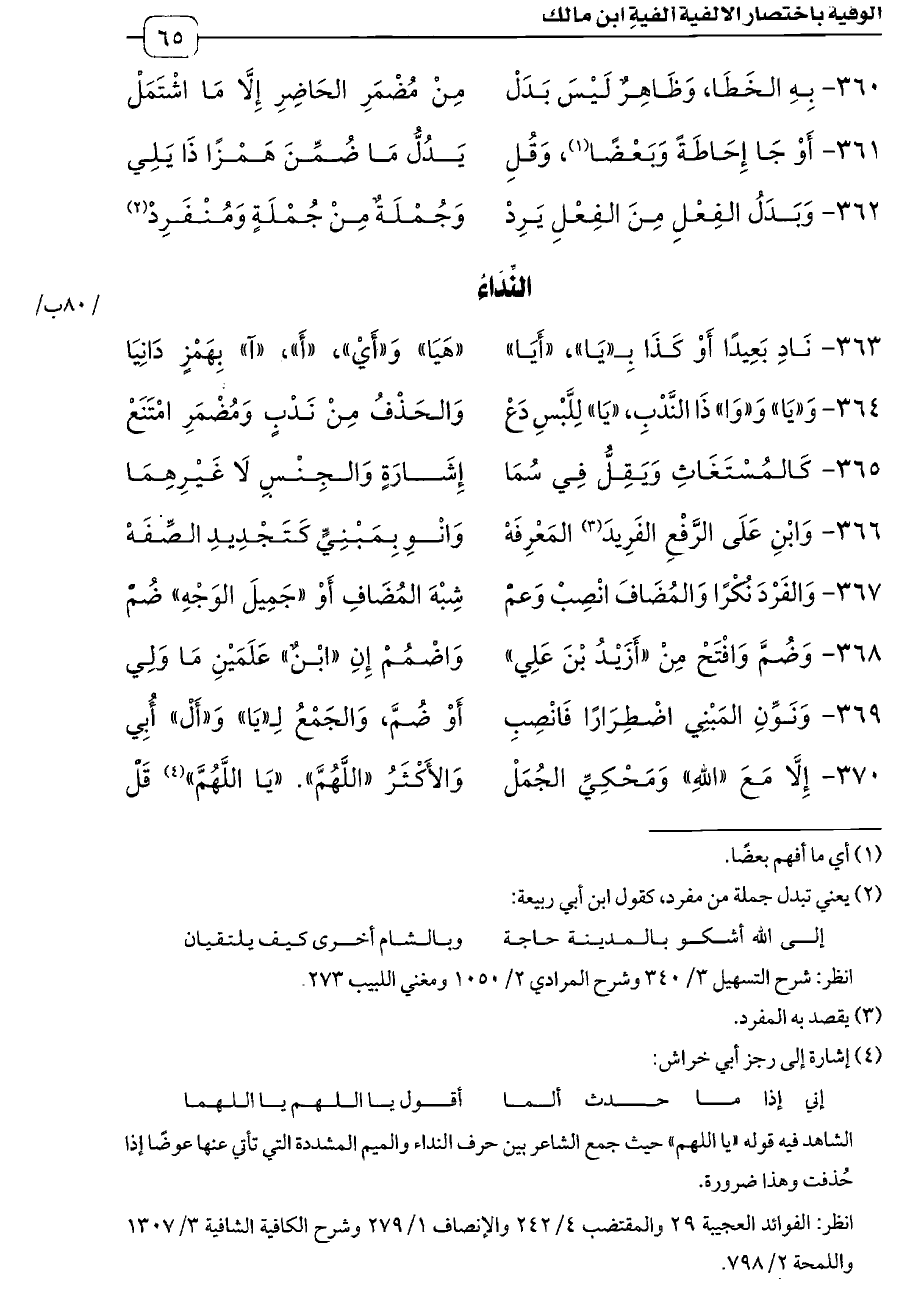 الوفية باختصار الالفية ألفية ابن مالك
٦٥
٣٦٠- بِهِ الـخَطَا، وَظَاهِرٌ لَيْسَ بَدَلْ مِنْ مُضْمَرِ الحَاضِرِ إِلَّا مَا اشْتَمَلْ
٣٦١- أَوْ جَا إِحَاطَةً وَبَعْضًا(١)، وَقُلِ يَدُلُّ مَا ضُمِّنَ هَمْزًا ذَا يَلِي
٣٦٢- وَبَدَلُ الفِعْلِ مِنَ الفِعْلِ يَرِدْ وَجُمْلَةٌ مِنْ جُمْلَةٍ وَمُنْفَرِدْ(٢)
النِّدَاءُ
/٨٠ب/
٣٦٣- نَادِ بَعِيدًا أَوْ كَذَا بِـ«يَا»، «أَيَا» «هَيَا» وَ«أَيْ»، «أَ»، «آ» بِهَمْزٍ دَانِيَا
٣٦٤- وَ«يَا» وَ«وَا» ذَا النَّدْبِ، «يَا» لِلَّبْسِ دَعْ وَالحَذْفُ مِنْ نَدْبٍ وَمُضْمَرِ امْتَنَعْ
٣٦٥- كَالمُسْتَغَاثِ وَيَقِلُّ فِي سُمَا إِشَارَةٍ وَالجِنْسِ لَا غَيْرِهِمَا
٣٦٦- وَابْنِ عَلَى الرَّفْعِ الفَرِيدَ(٣) المَعْرِفَهْ وَانْوِ بِمَبْنِيٍّ كَتَجْدِيدِ الصِّفَهْ
٣٦٧- وَالفَرْدَ نُكْرًا وَالمُضَافَ انْصِبْ وَعَمْ شِبْهَ المُضَافِ أَوْ «جَمِيلَ الوَجْهِ» ضُمْ
٣٦٨- وَضُمَّ وَافْتَحْ مِنْ «أَزَيْدُ بْنَ عَلِي» وَاضْمُمْ إِنِ «ابْنٌ» عَلَمَيْنِ مَا وَلِي
٣٦٩- وَنَوِّنِ المَبْنِي اضْطِرَارًا فَانْصِبِ أَوْ ضُمَّ، وَالجَمْعُ لِـ«يَا» وَ«أَلْ» أُبِي
٣٧٠- إِلَّا مَعَ «اللهِ» وَمَحْكِيِّ الجُمَلْ وَالأَكْثَرُ «اللَّهُمَّ». «يَا اللَّهُمَّ»(٤) قَلّْ
(١) أي ما أفهم بعضًا.
(٢) يعني تبدل جملة من مفرد، كقول ابن أبي ربيعة:
إلى الله أشكو بالمدينة حاجة وبالشام أخرى كيف يلتقيان
انظر: شرح التسهيل ٣/ ٣٤٠ وشرح المرادي ٢/ ١٠٥٠ ومغني اللبيب ٢٧٣.
(٣) يقصد به المفرد.
(٤) إشارة إلى رجز أبي خراش:
إني إذا ما حدث ألما أقول يا اللهم يا اللهما
الشاهد فيه قوله «يا اللهم» حيث جمع الشاعر بين حرف النداء والميم المشددة التي تأتي عنها عوضًا إذا
حُذفت وهذا ضرورة.
انظر: الفوائد العجيبة ٢٩ والمقتضب ٤/ ٢٤٢ والإنصاف ١/ ٢٧٩ وشرح الكافية الشافية ٣/ ١٣٠٧
واللمحة ٢/ ٧٩٨.